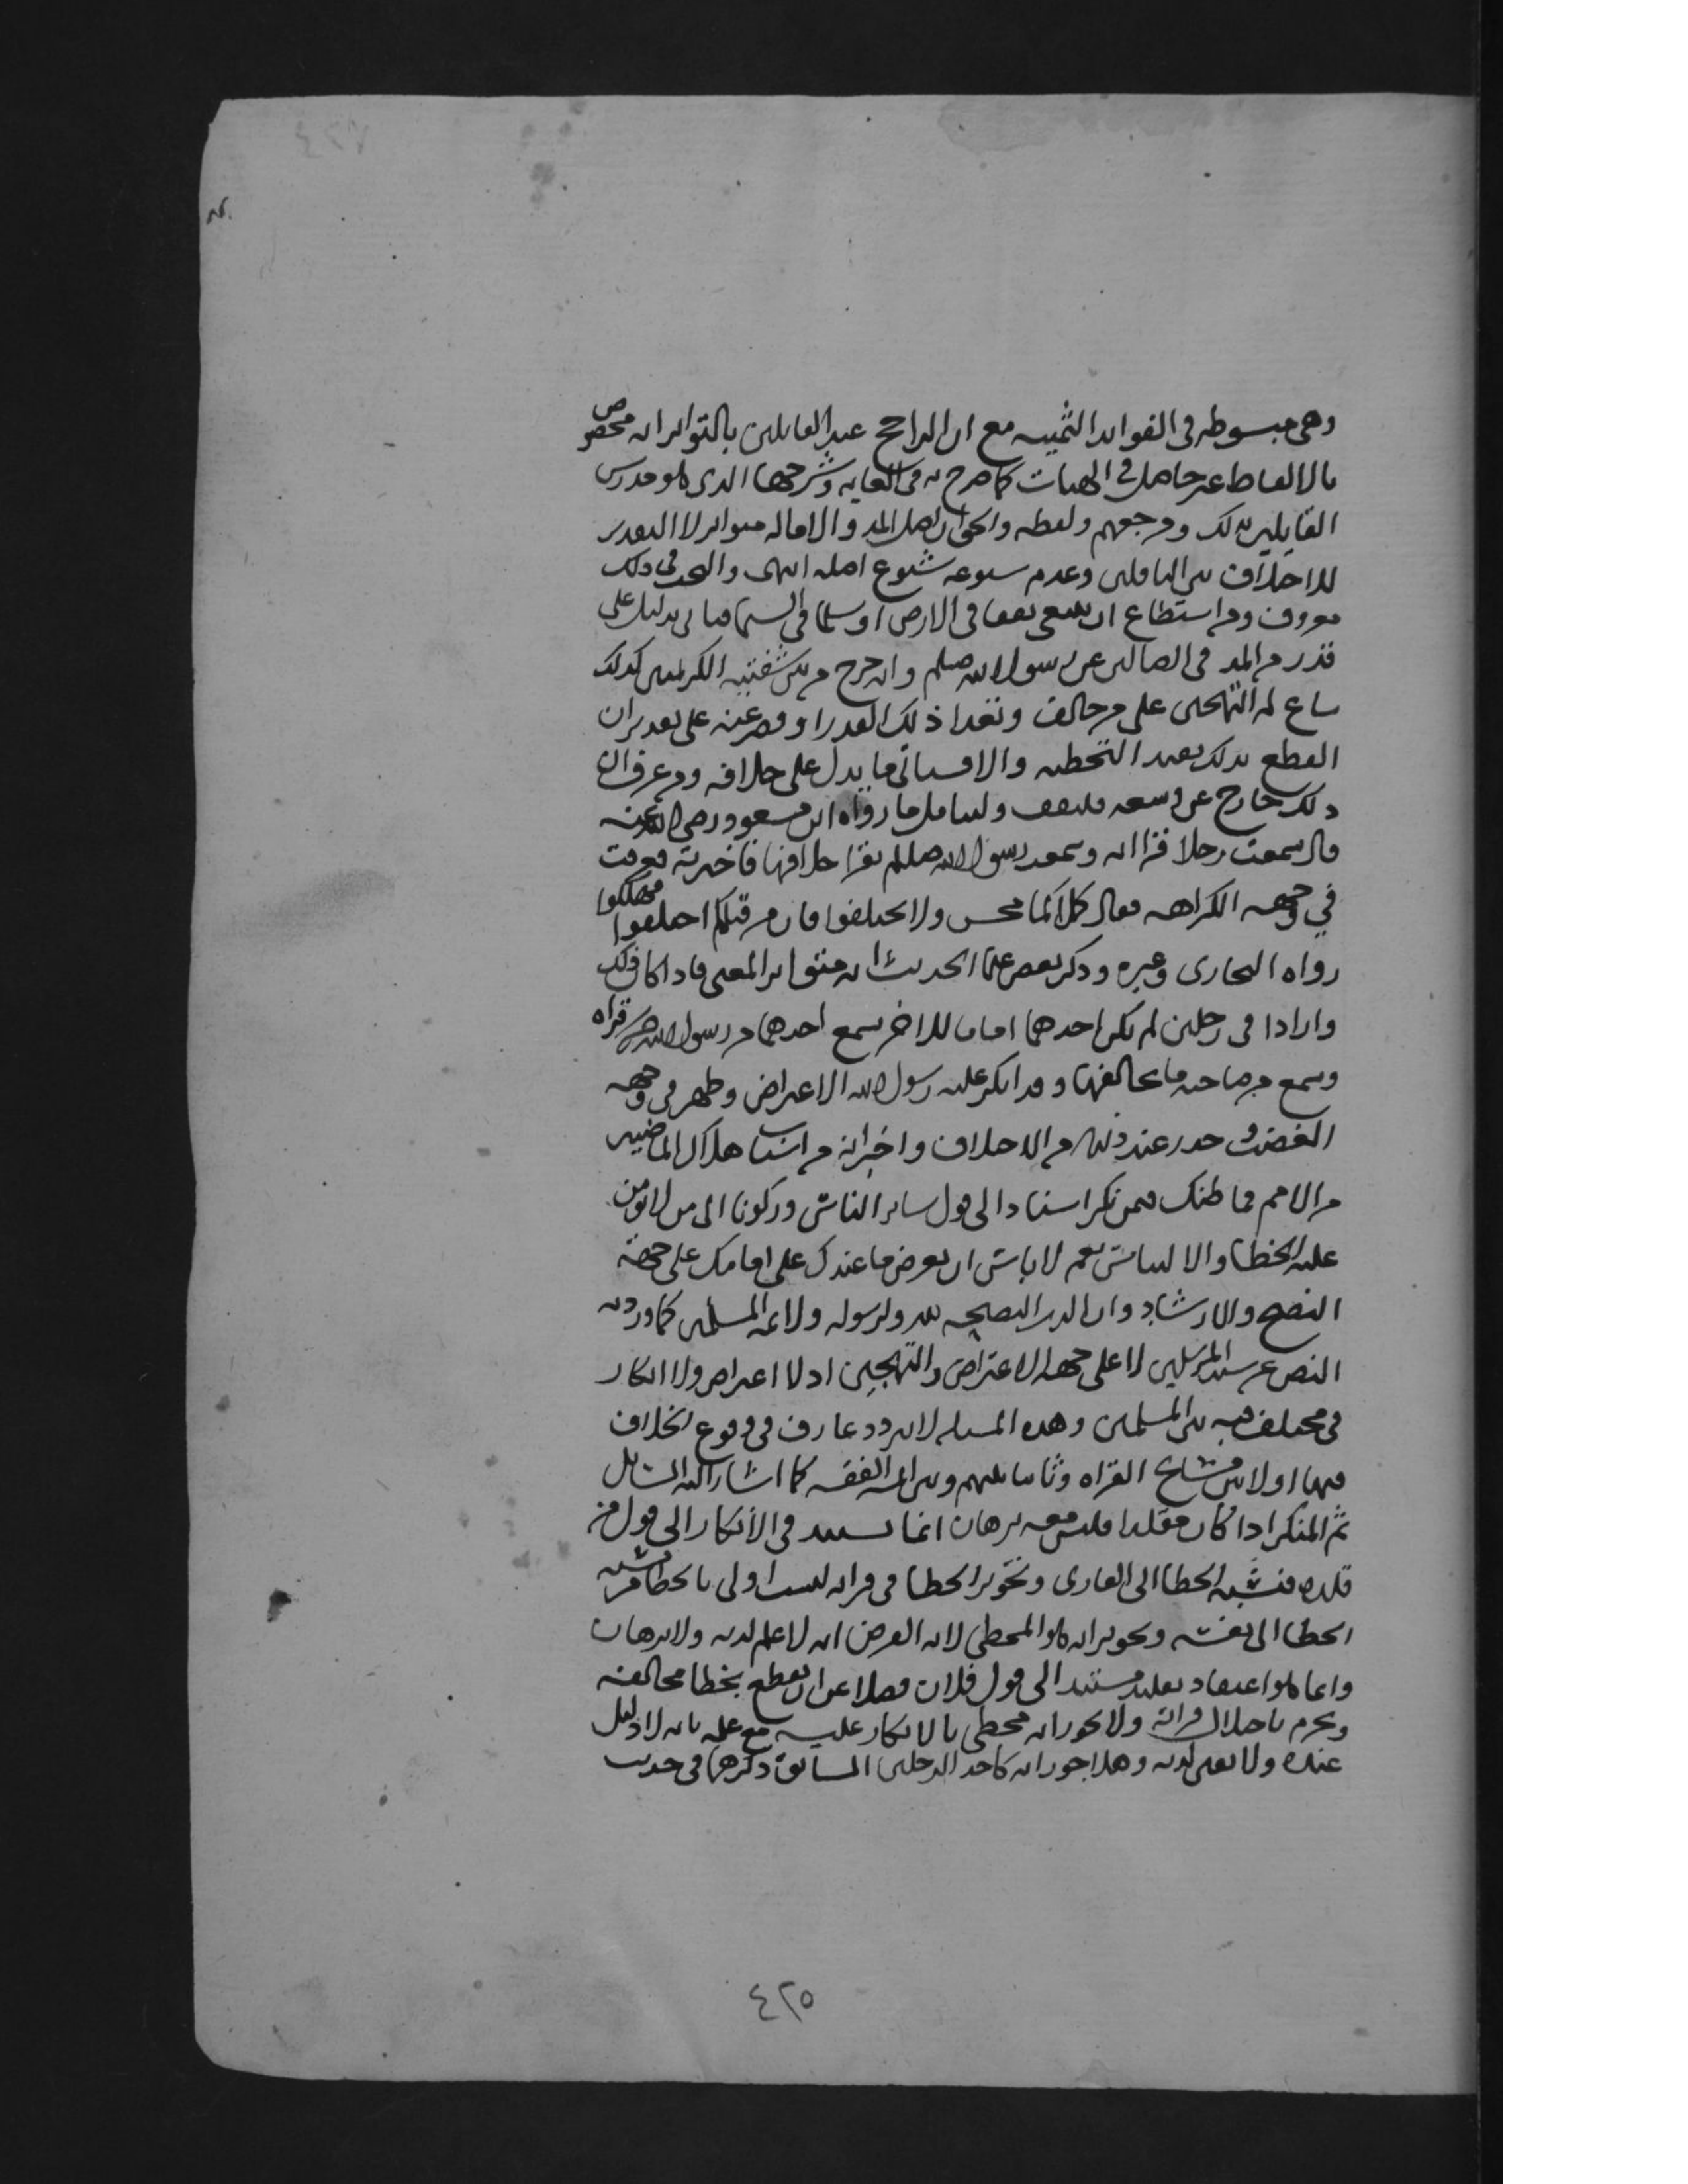 وهي مبسوطه في الفوايد الثمينه مع ان الراجح عند القايلين بالتواتر انه مخصوص
بالالفاظ غير حاصل في الهيات كما صرح به في الغايه وشرحها الذي هو مدرس
القايلين بذلك ومرجعهم ولفظه والحق ان اصل المد والاماله متواتر لا التقدير
للاختلاف بين الناقلين وعدم شيوعه شيوع اصله انتهى والبحث في ذلك
معروف ومن استطاع ان يبتغي نفقا في الارض او سلما في السما فياتي بدليل على
قدر من المد في الضالين عن رسول الله صلم وانه خرج من بين شفتيه الكريمتين كذلك
ساغ له التهجين على من خالف وتعدا ذلك القدر او قصر عنه على تقدير ان
القطع بذلك يفيد التخطيه والا فسياتي ما يدل على خلافه ومن عرف ان
ذلك خارج عن وسعه فليقف وليتامل ما رواه ابن مسعود رضي الله عنه
قال سمعت رجلا قرا ايه وسمعت رسول الله صللم يقرا خلافها فاخبرته فعرفت
في وجهه الكراهه فقال كلاكما محسن ولا تختلفوا فان من قبلكم اختلفوا فهلكوا
رواه البخاري وغيره وذكر بعض علما الحديث انه متواتر المعنى فاذا كان ذلك
واردا في رجلين لم يكن احدهما اماما للاخر سمع احدهما من رسول الله قراه
وسمع من صاحبه ما يخالفها وقد انكر عليه رسول الله الاعتراض وظهر في وجهه
الغضب وحذر عند ذلك من الاختلاف واخبر انه من اسباب هلاك الماضيين
من الامم فما ظنك فيمن ينكر استنادا الى قول ساير الناس وركونا الى من لا يومن
عليه الخطا والالتباس نعم لا باس ان تعرض ما عندك على امامك على جهة
النصح والارشاد وان الدين النصيحه لله ولرسوله ولايمه المسلمين كما ورد به
النص عن سيد المرسلين لا على جهه الاعتراض والتهجين اذ لا اعتراض ولا انكار
في مختلف فيه بين المسلمين وهذه المسئله لا يتردد عارف في وقوع الخلاف
فيها اولا بين مشايخ القراه وثانيا بينهم وبين ايمه الفقه كما اشار اليه السايل
ثم المنكر اذا كان مقلدا فليس معه برهان انما يستند في الانكار الى قول من
قلده فنسبه الخطا الى القاري وتجويز الخطا في قراته ليست اولى بالخطا من نسبه
الخطا الى نفسه وتجويز انه هو المخطي لان الفرض انه لا علم لديه ولا برهان
وانما هو اعتقاد تقليد مستند الى قول فلان فضلا عن ان يقطع بخطا مخالفه
ويجزم باختلال قراته ولا يجوز انه مخطي بالانكار عليه مع علمه بانه لا دليل
عنده ولا يقين لديه وهلا جوز انه كاحد الرجلين السابق ذكرهما في حديث
٤٢٥